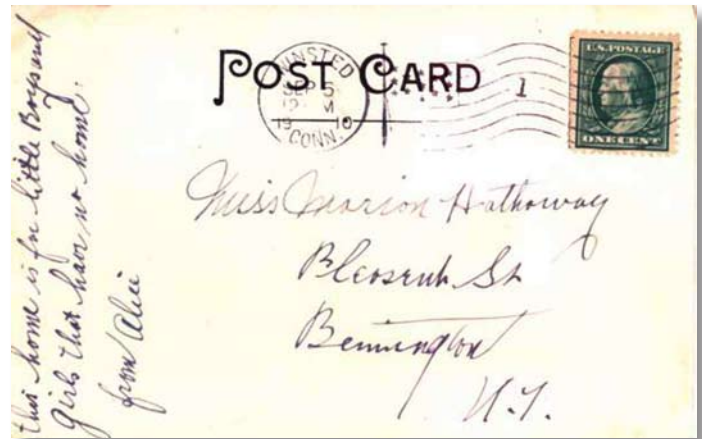 this home is for little Boys and
girls that have no home.
from Alice
POST CARD
WINSTED
SEP 5
12 M
1910
CONN.
1
U.S. POSTAGE
ONE CENT
Miss Marion Hathoway
St
Bennington